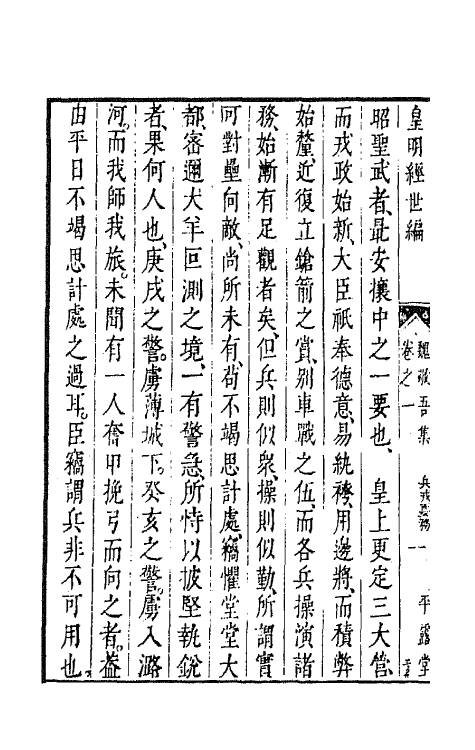 皇明經世編
魏敬吾集
卷之一
兵戎要務
一
平露堂
昭聖武者、最安攘中之一要也、　皇上更定三大營、
而戎政始新、大臣祇奉德意、易統𫆀、用邊將、而積弊
始釐、近復立鎗箭之賞、別車戰之伍、而各兵操演諸
務、始漸有足觀者矣、但兵則似衆、操則似勤、所謂實
可對壘向敵、尚所未有、苟不竭思計處、竊懼堂堂大
都、密邇犬羊叵測之境、一有警急、所恃以披堅執銳
者、果何人也、庚戌之警、虜薄城下。癸亥之警。虜入潞
河。而我師我旅。未聞有一人奮甲挽弓而向之者。葢
由平日不竭思計處之過耳。臣竊謂兵非不可用也、